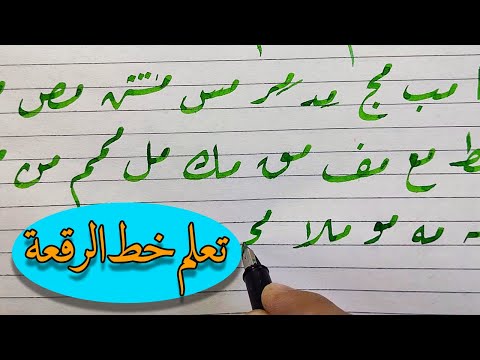 مب مج مد مر مس مش مص
مع مف مق مك مل ممم من
مه مو ملا
تعلم خط الرقعة